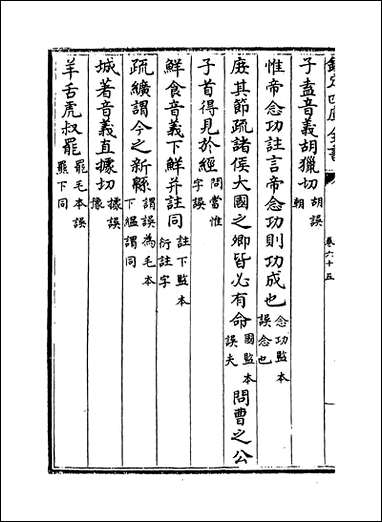 欽定四庫全書
卷六十五
子盍音義胡獵切胡誤朝
惟帝念功註言帝念功則功成也念功監本誤念也
庪其節疏諸侯大國之卿皆必有命國監本誤夫問曹之公
子首得見於經問當惟字誤
鮮食音義下鮮并註同註下監本衍註字
疏纊謂今之新緜謂誤為毛本下緼謂同
城著音義直據切據誤㨿
羊舌虎叔羆羆毛本誤羆下同